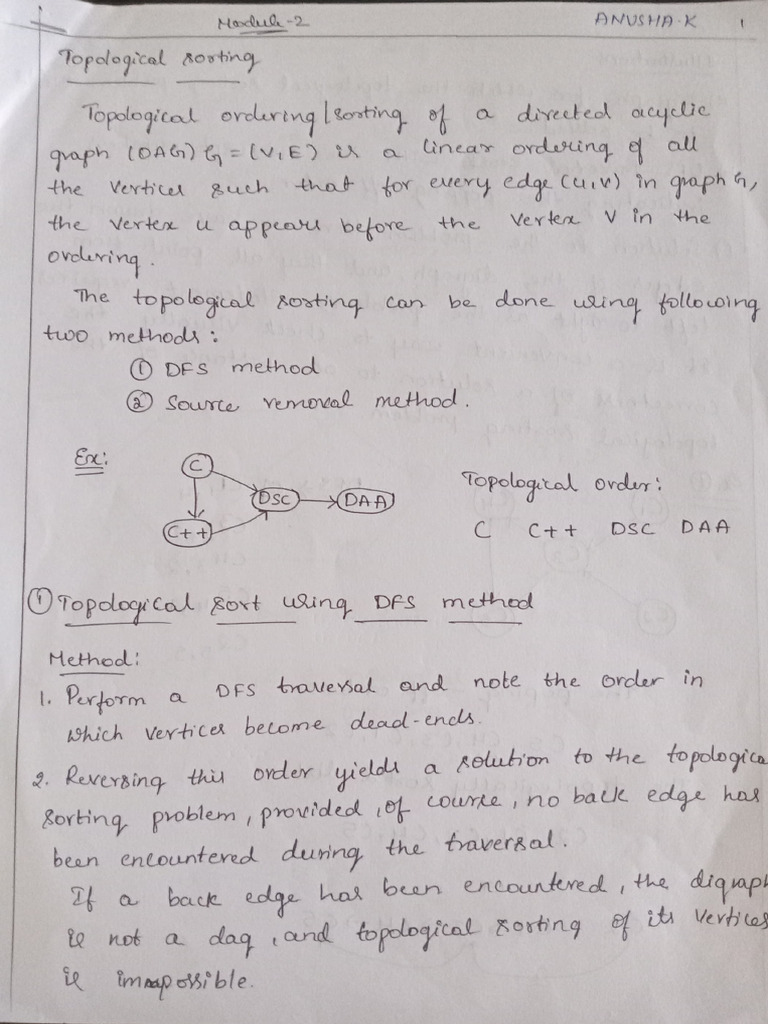 Module-2 ANUSHA-K 1
Topological sorting
Topological ordering/sorting of a directed acyclic
graph (DAG) G=(V,E) is a linear ordering of all
the vertices such that for every edge (u,v) in graph G,
the vertex u appears before the vertex v in the
ordering.
The topological sorting can be done using following
two methods:
① DFS method
② Source removal method.
Ex:
C
DSC
DAA
C++
Topological order:
C C++ DSC DAA
① Topological sort using DFS method
Method:
1. Perform a DFS traversal and note the order in
which vertices become dead-ends.
2. Reversing this order yields a solution to the topologica
sorting problem, provided, of course, no back edge has
been encountered during the traversal.
If a back edge has been encountered, the digraph
is not a dag, and topological sorting of its vertices
is impossible.